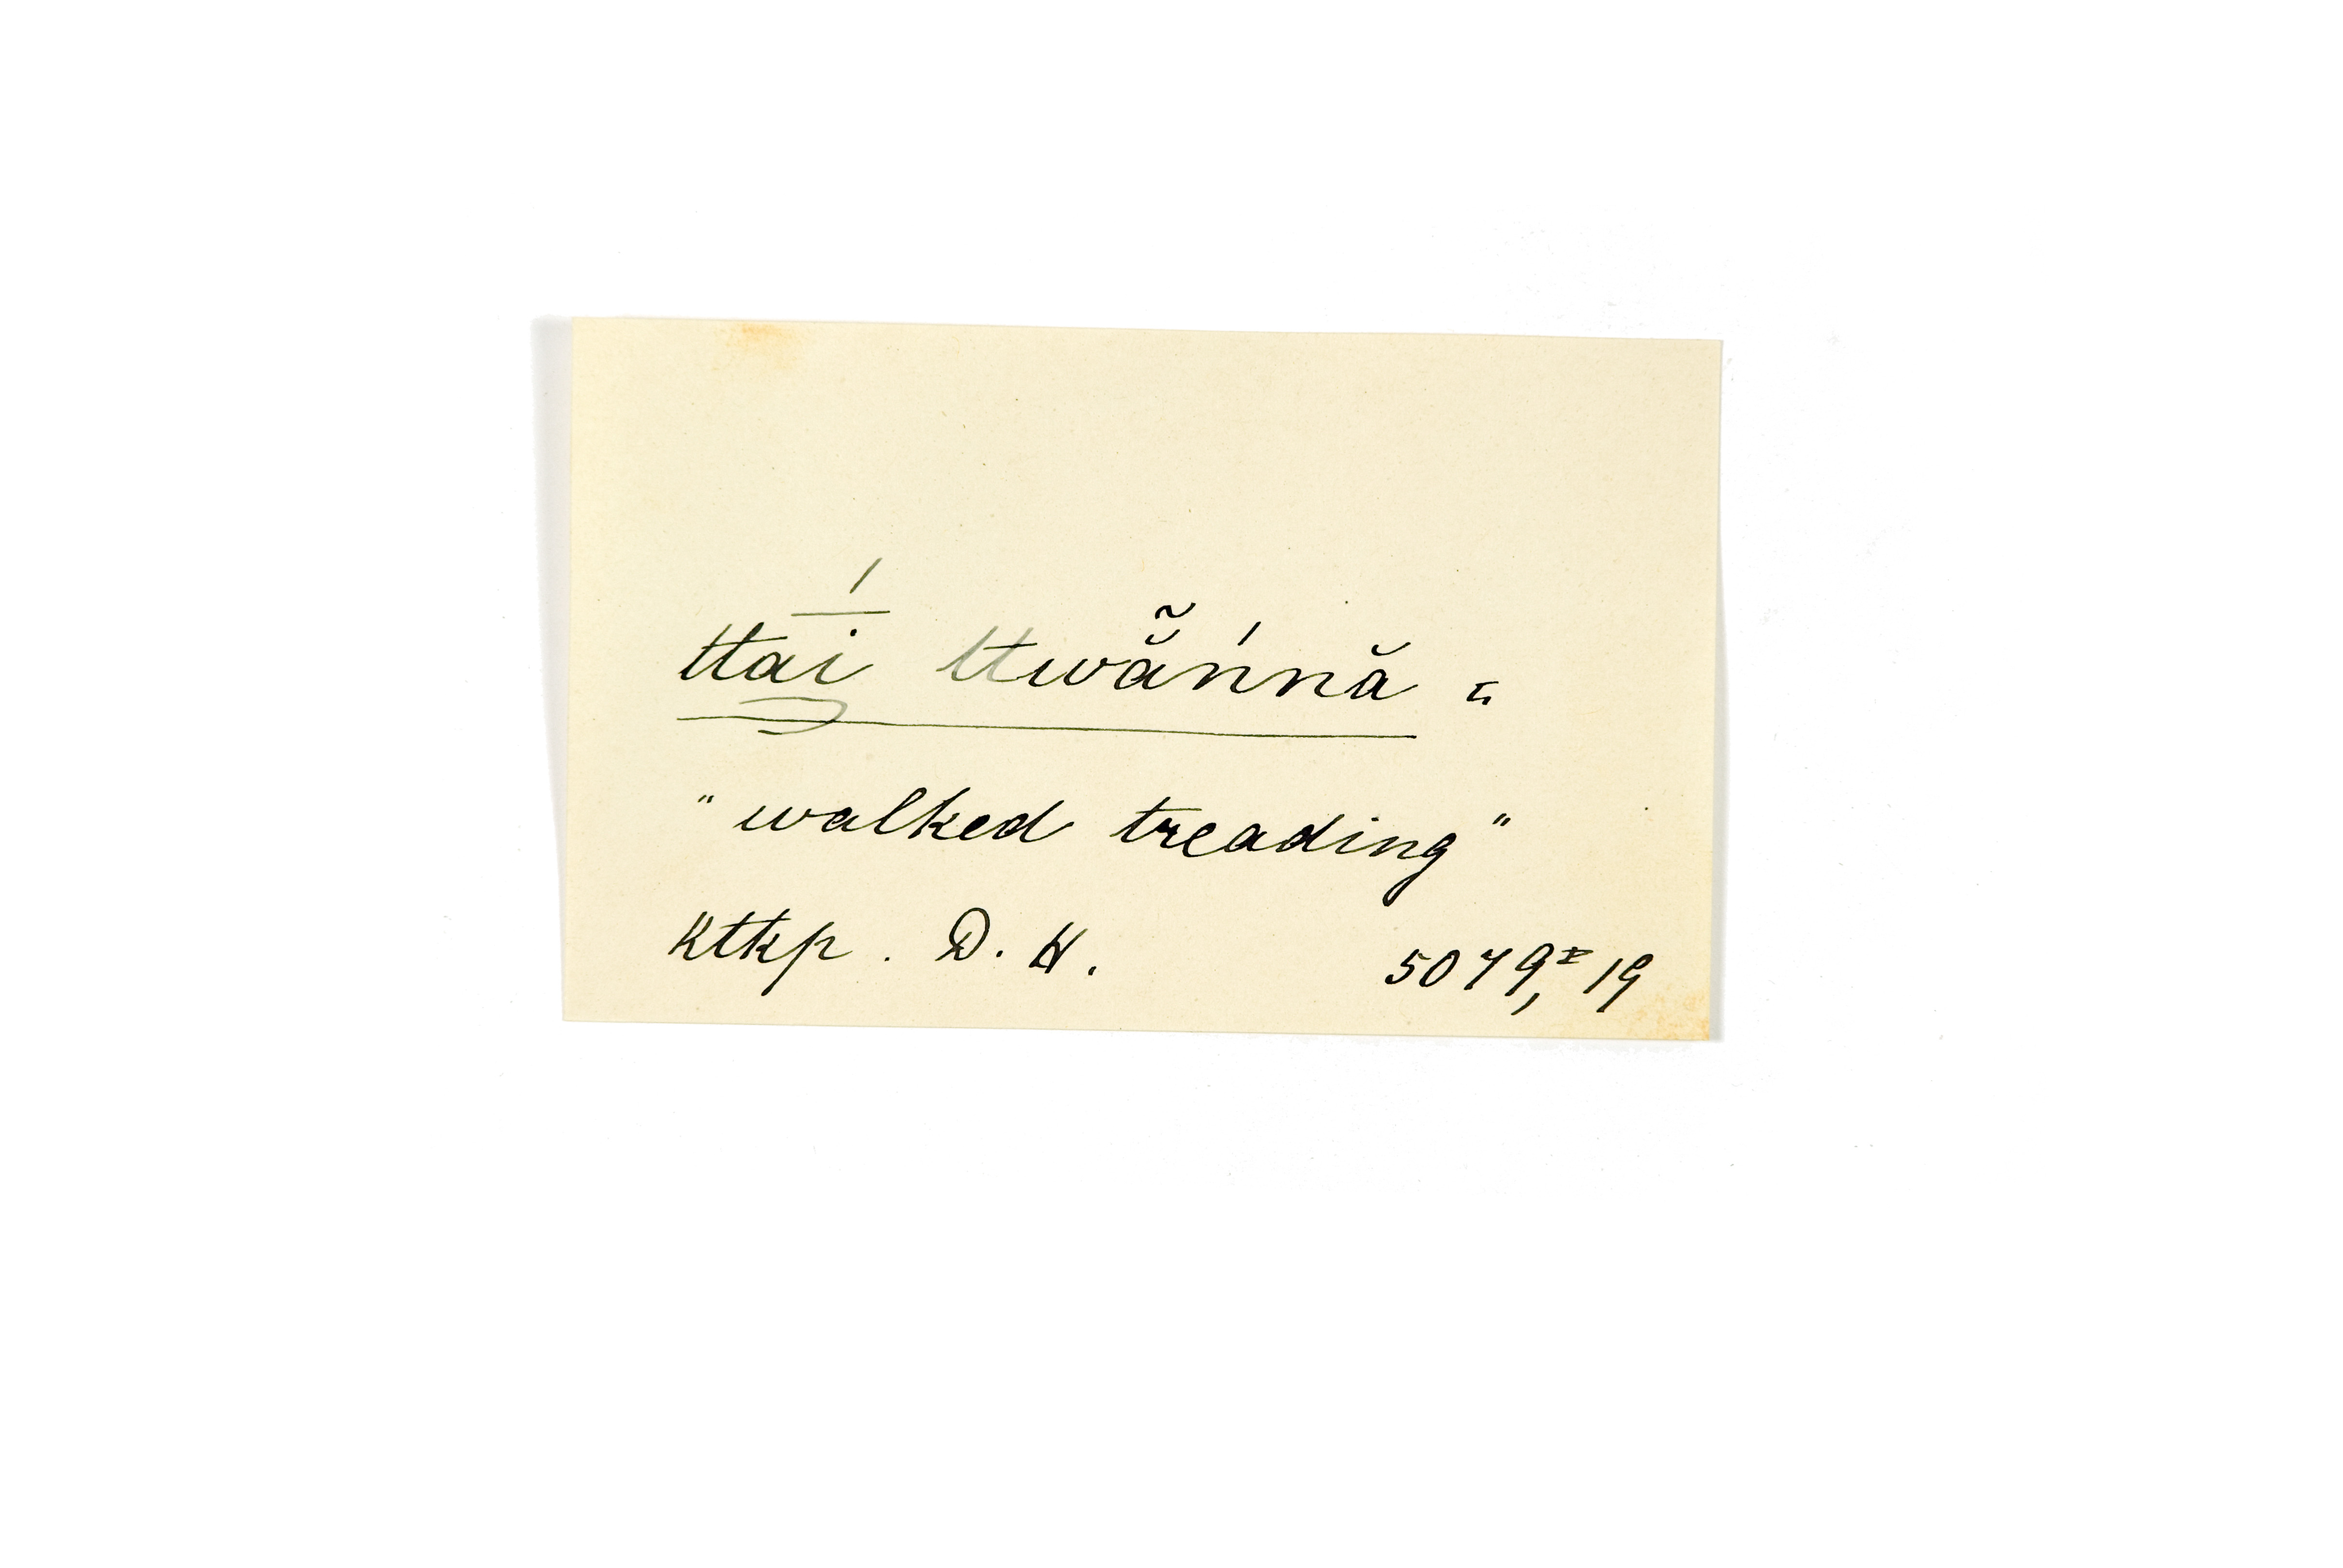 ttaí ttwā̆̃ńnă =
"walked treading"
Ktkp. D. H. 5079, = 19